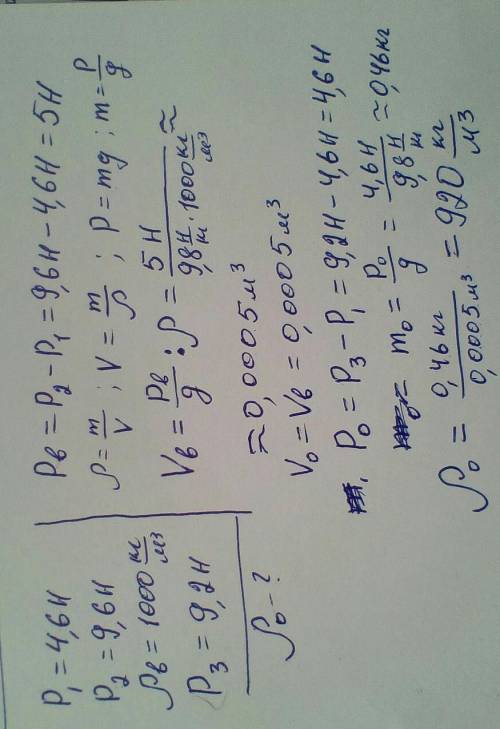 P₁ = 4,6 Н
P₂ = 9,6 Н
ρв = 1000 кг/м³
P₃ = 9,2 Н
ρ₀ - ?
Pв = P₂ - P₁ = 9,6 Н - 4,6 Н = 5 Н
ρ = m/V ; V = m/ρ ; P = mg ; m = P/g
Vв = Pв/g : ρ = 5 Н / 9,8 Н/кг · 1000 кг/м³ ≈
≈ 0,0005 м³
V₀ = Vв = 0,0005 м³
P₀ = P₃ - P₁ = 9,2 Н - 4,6 Н = 4,6 Н
m₀ = P₀/g = 4,6 Н / 9,8 Н/кг ≈ 0,46 кг
ρ₀ = 0,46 кг / 0,0005 м³ = 920 кг/м³